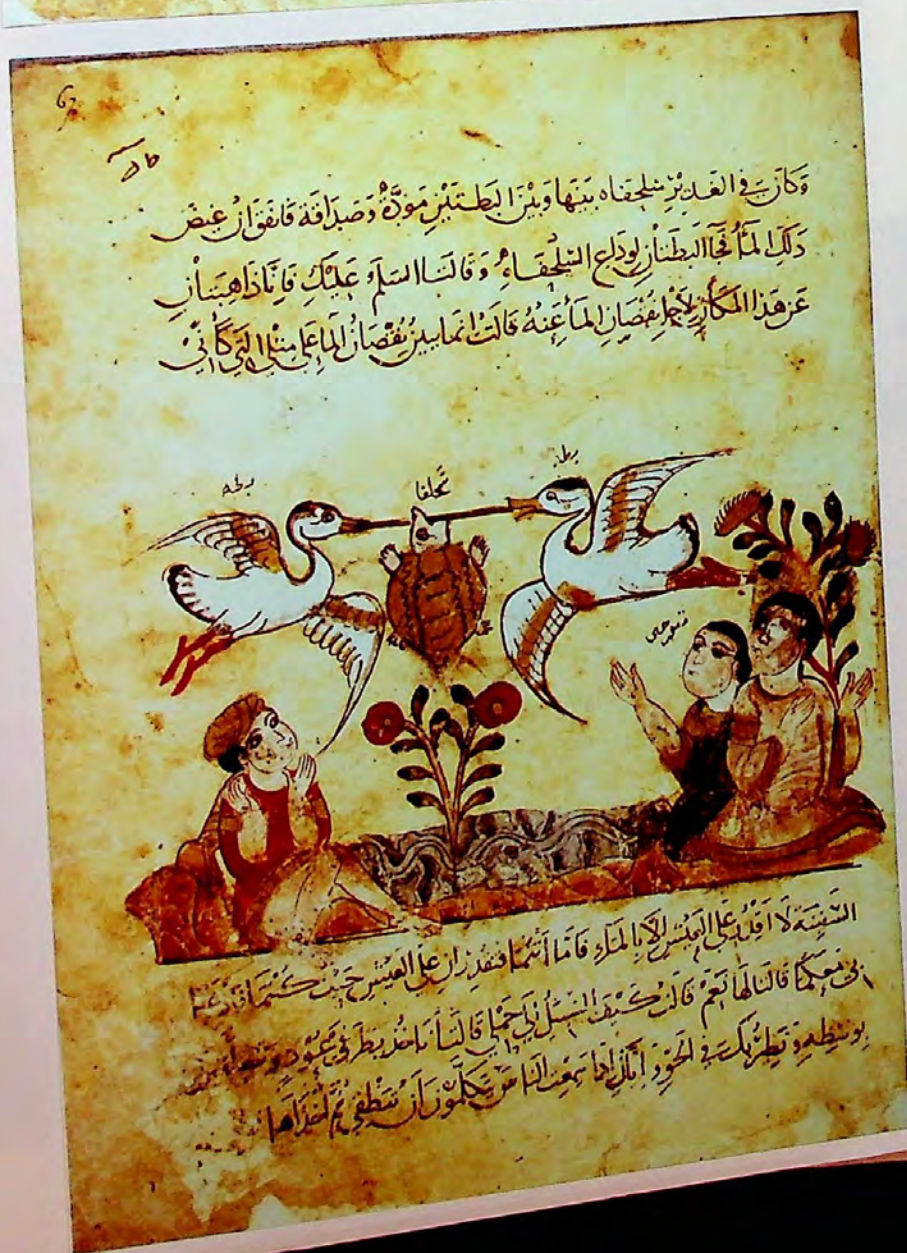 وكان في الغدير سلحفاه بينها وبين البطتين مودة وصداقة فاتفق ان غيض
ذلك الماء فجأ البطتان لوداع السلحفاة وقالتا السلم عليك فاننا ذاهبتان
عن هذا المكان لاجل نقصان الماء عنه قالت انما يبين نقصان الماء على مثلي التي كأني
بطه
سحلفا
بطه
السفينة لا اقدر على العيش الا بالماء فاما أنتما فتقدران على العيش حيث كنتما
بي معكما قالتا لها نعم قالت كيف السبيل الي حملي قالتا ناخذ بطرفي عود
بوسطه ونطير بك في الجو و اياك اذا سمعت الناس يتكلمون أن تنطقي ثم اخذاها